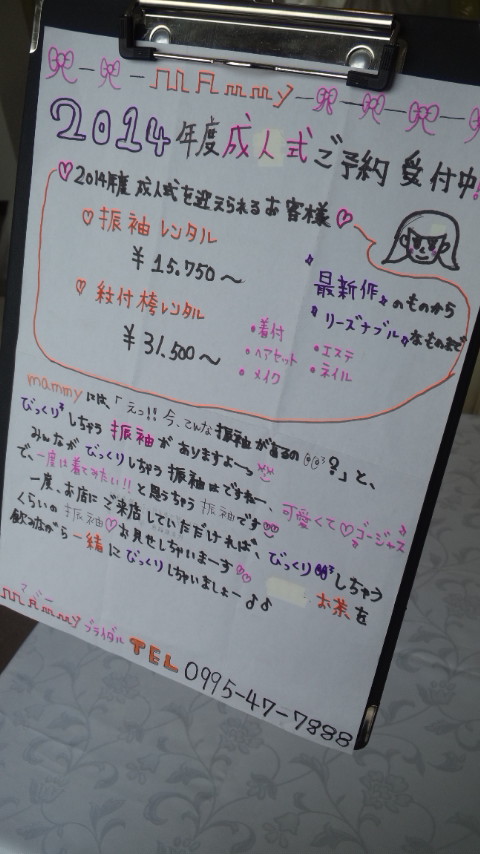 mAmmy
2014年度成人式ご予約受付中!
♡2014年度 成人式を迎えられるお客様♡
♡振袖レンタル
¥15.750〜
♡紋付袴レンタル
¥31.500〜
"最新作"のものから
"リーズナブル"なものまで
・着付
・ヘアセット
・メイク
・エステ
・ネイル
mammyには「えっ!!今、こんな振袖があるの?」と、
びっくりしちゃう振袖がありますよ〜
みんながびっくりしちゃう振袖はですね〜、可愛くて♡ゴージャス
で、一度は着てみたい!!と思うちゃう振袖です
一度、お店にご来店していただければ、びっくりしちゃう
くらいの振袖♡お見せしちゃいまーす お茶を
飲みながら一緒にびっくりしちゃいましょー♪♪
マミー
mAmmyブライダル TEL 0995-47-7888